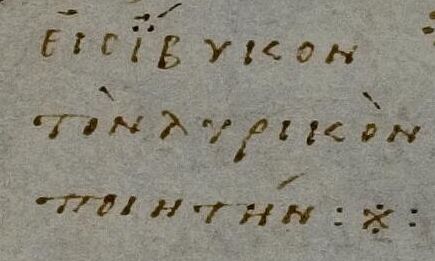 εἰσ ἴ̈βυκον
τὸν λυρικὸν
ποιητήν : ※ :